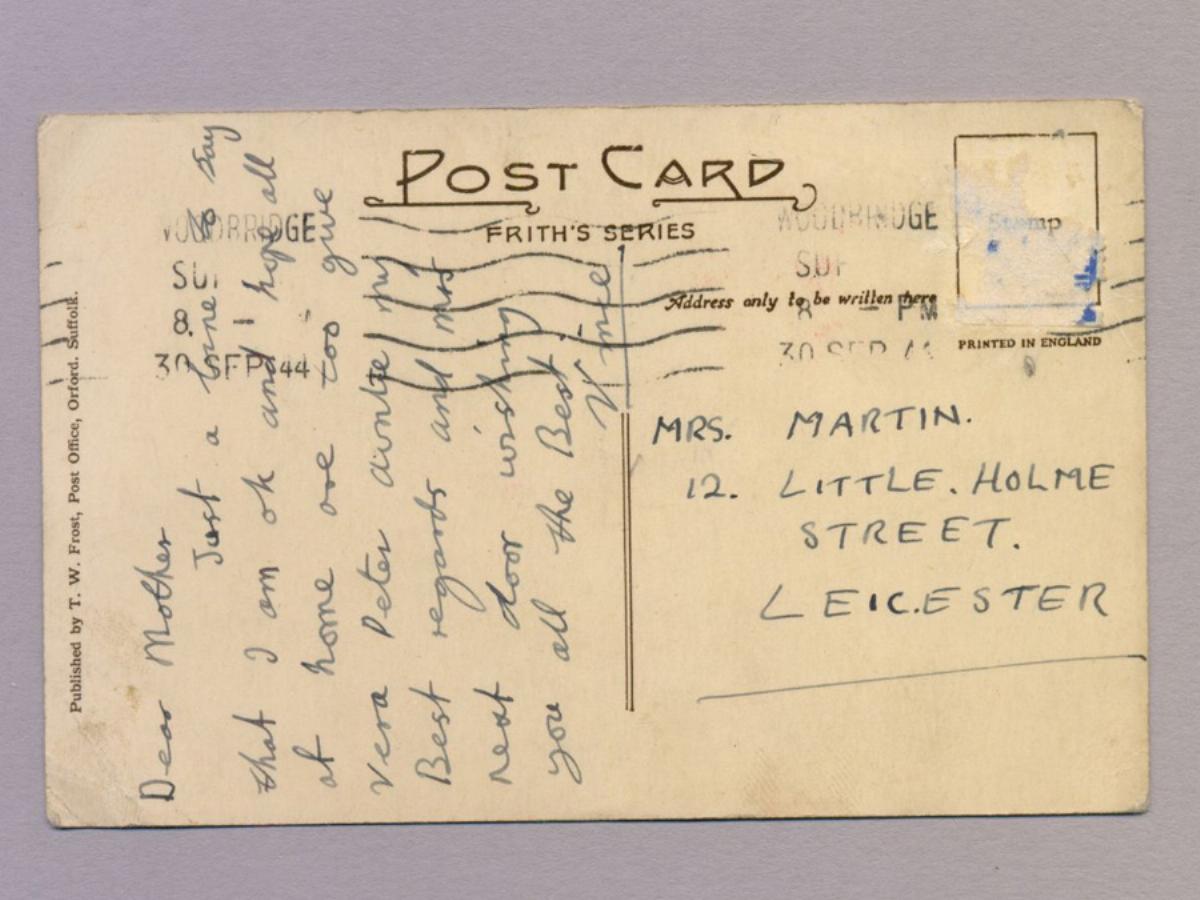 POST CARD
FRITH'S SERIES
Address only to be written here
Stamp
PRINTED IN ENGLAND
WOODBRIDGE
SUF
8. -
30 SEP 44
WOODBRIDGE
SUF
8 - PM
30 SEP 44
Published by T. W. Frost, Post Office, Orford. Suffolk.
Dear Mother
Just a line to say
that I am ok and hope all
at home are too give
Vera Peter auntie my
Best regards and mrs
next door wishing
you all the Best
MRS. MARTIN.
12. LITTLE. HOLME
STREET.
LEICESTER